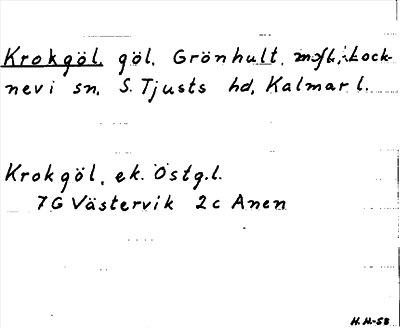 Krokgöl, göl, Grönhult, Lock-
nevi sn, S. Tjusts hd, Kalmar l.
Krokgöl, ek. Östg.l.
7G Västervik 2c Anen
H.H.-58